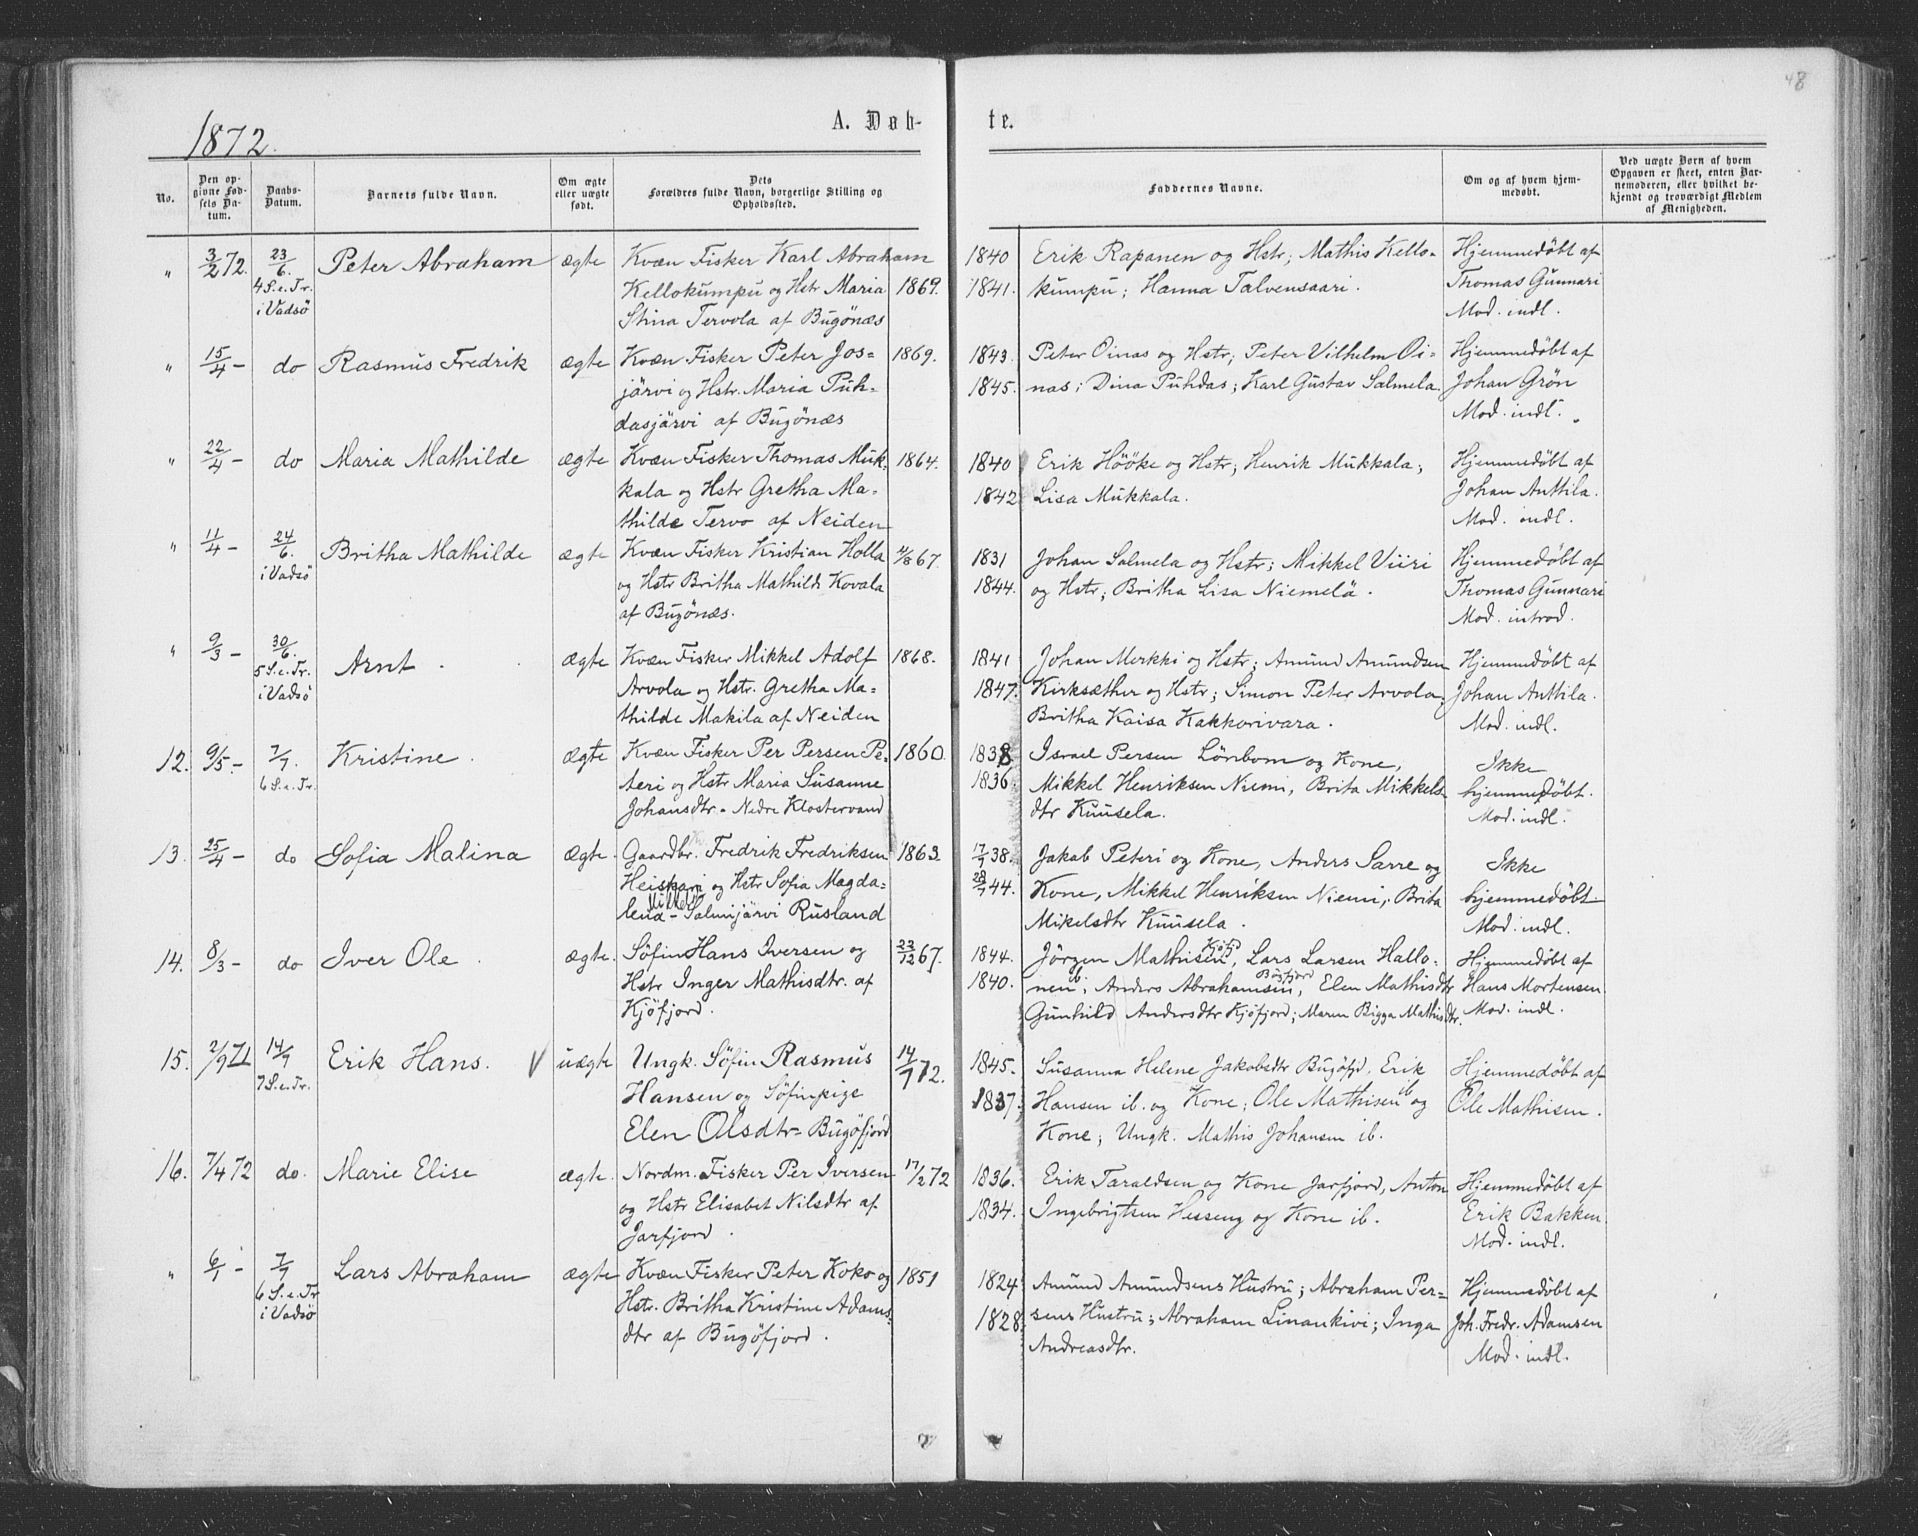 48
1872.
A. Døb-
te.
No.
Den op-
givne Fød-
sels Da-
tum.
Daabs-
Datum.
Barnets fulde Navn.
Om ægte
eller uægte
født.
Dets
Forældres fulde Navn, borgerlige Stilling og
Opholdssted.
Faddernes Navne.
Om og af hvem hjem-
medøbt.
Ved uægte Børn af hvem
Opgaven er skeet, enten Bar-
nemoderen, eller hvilket be-
kjendt og troværdigt Medlem
af Menigheden.
" 3/2 72. 23/6. Peter Abraham ægte Kvæn Fisker Karl Abraham 1840 Erik Rapanen og Hstr; Mathis Kello- Hjemmedøbt af
4 S.e.Tr. Kellokumpu og Hstr Maria 1869. 1841. kumpu; Hanna Talvensaari. Thomas Gunnari
i Vadsö Stina Tervola af Bugönæs Mod. indl.
" 15/4 - do Rasmus Fredrik ægte Kvæn Fisker Peter Jos- 1869. 1843. Peter Oinas og Hstr; Peter Vilhelm Oi- Hjemmedøbt af
järvi og Hstr. Maria Puh- 1845. nas; Dina Puhdas; Karl Gustav Salmela. Johan Grøn
dasjärvi af Bugönæs Mod. indl.
" 22/4 - do Maria Mathilde ægte Kvæn Fisker Thomas Muk- 1864. 1840 Erik Hööke og Hstr; Henrik Mukkala; Hjemmedøbt af
kala og Hstr Gretha Ma- 1842 Lisa Mukkala. Johan Anttila.
thilde Tervo af Neiden Mod. indl.
" 11/4 - 24/6. Britha Mathilde ægte Kvæn Fisker Kristian Holla /8 67. 1831 Johan Salmela og Hstr; Mikkel Viiri Hjemmedøbt af
i Vadsö og Hstr Britha Mathild Kovala 1844. og Hstr; Britha Lisa Niemelä. Thomas Gunnari
af Bugönæs. Mod. introd.
" 9/3 - 30/6. Arnt. ægte Kvæn Fisker Mikkel Adolf 1868. 1841 Johan Merkki og Hstr; Amund Amundsen Hjemmedøbt af
5 S.e.Tr. Arvola og Hstr. Gretha Ma- 1847. Kirksæther og Hstr; Simon Peter Arvola; Johan Anttila.
i Vadsö thilde Makila af Neiden Britha Kaisa Kakkorivara. Mod. indl.
12. 9/5 -. 7/7. Kristine. ægte Kvæn Fisker Per Persen Pe- 1860. 1838 Israel Persen Lönbom og Kone, Ikke
6 S.e.Tr. teri og Hstr Maria Susanne 1836. Mikkel Henriksen Niemi, Brita Mikkels- hjemmedøbt.
Johansdtr - Nedre Klostervand dtr Kuusela. Mod. indl.
13. 25/4 - do Sofia Malina ægte. Gaardbr. Fredrik Fredriksen 1863. 17/7 38. Jakob Peteri og Kone, Anders Sarre og Ikke
Heiskari og Hstr Sofia Magda- 28/7 44. Kone, Mikkel Henriksen Niemi, Brita hjemmedøbt
lena - Salmijärvi Rusland Mikelsdtr Kuusela. Mod. indl.
14. 8/3 - do Iver Ole. ægte. Söfin Hans Iversen og 23/12 67. 1844. Jörgen Mathisen, Lars Larsen Hallo- Hjemmedøbt af
Hstr Inger Mathisdtr. af 1840. nen ib; Anders Abrahamsen Bugfjord, Elen Mathisdtr Hans Mortensen.
Kjöfjord. Gunhild Andersdtr Kjöfjord; Maren Bigga Mathisdtr. Mod. indl.
15. 2/9 71 14/7 Erik Hans. V uægte Ungk. Söfin Rasmus 14/7 72. 1845. Susanna Helene Jakobsdtr Bugöfjd, Erik Hjemmedøbt af
7 S.e.Tr. Hansen og Söfinpige 1837. Hansen ib. og Kone; Ole Mathisen ib og Ole Mathisen.
Elen Olsdtr - Bugöfjord Kone; Ungk. Mathis Johansen ib.
16. 7/4 72 do. Marie Elise ægte. Nordm. Fisker Per Iversen 17/2 72 1836. Erik Taraldsen og Kone Jarfjord, Anton Hjemmedøbt af
og Hstr Elisabet Nilsdtr af 1834. Ingebrigtsen Hesseng og Kone ib. Erik Bakken.
Jarfjord. Mod. indl.
" 6/1 - 7/7 Lars Abraham ægte Kvæn Fisker Peter Koko og 1851 1824 Amund Amundsens Hustru; Abraham Per- Hjemmedøbt af
6 S.e.Tr Hstr. Britha Kristine Adams- 1828 sens Hustru; Abraham Linankivi; Inga Joh. Fredr. Adamsen
i Vadsö dtr af Bugöfjord. Andreasdtr. Mod. indl.